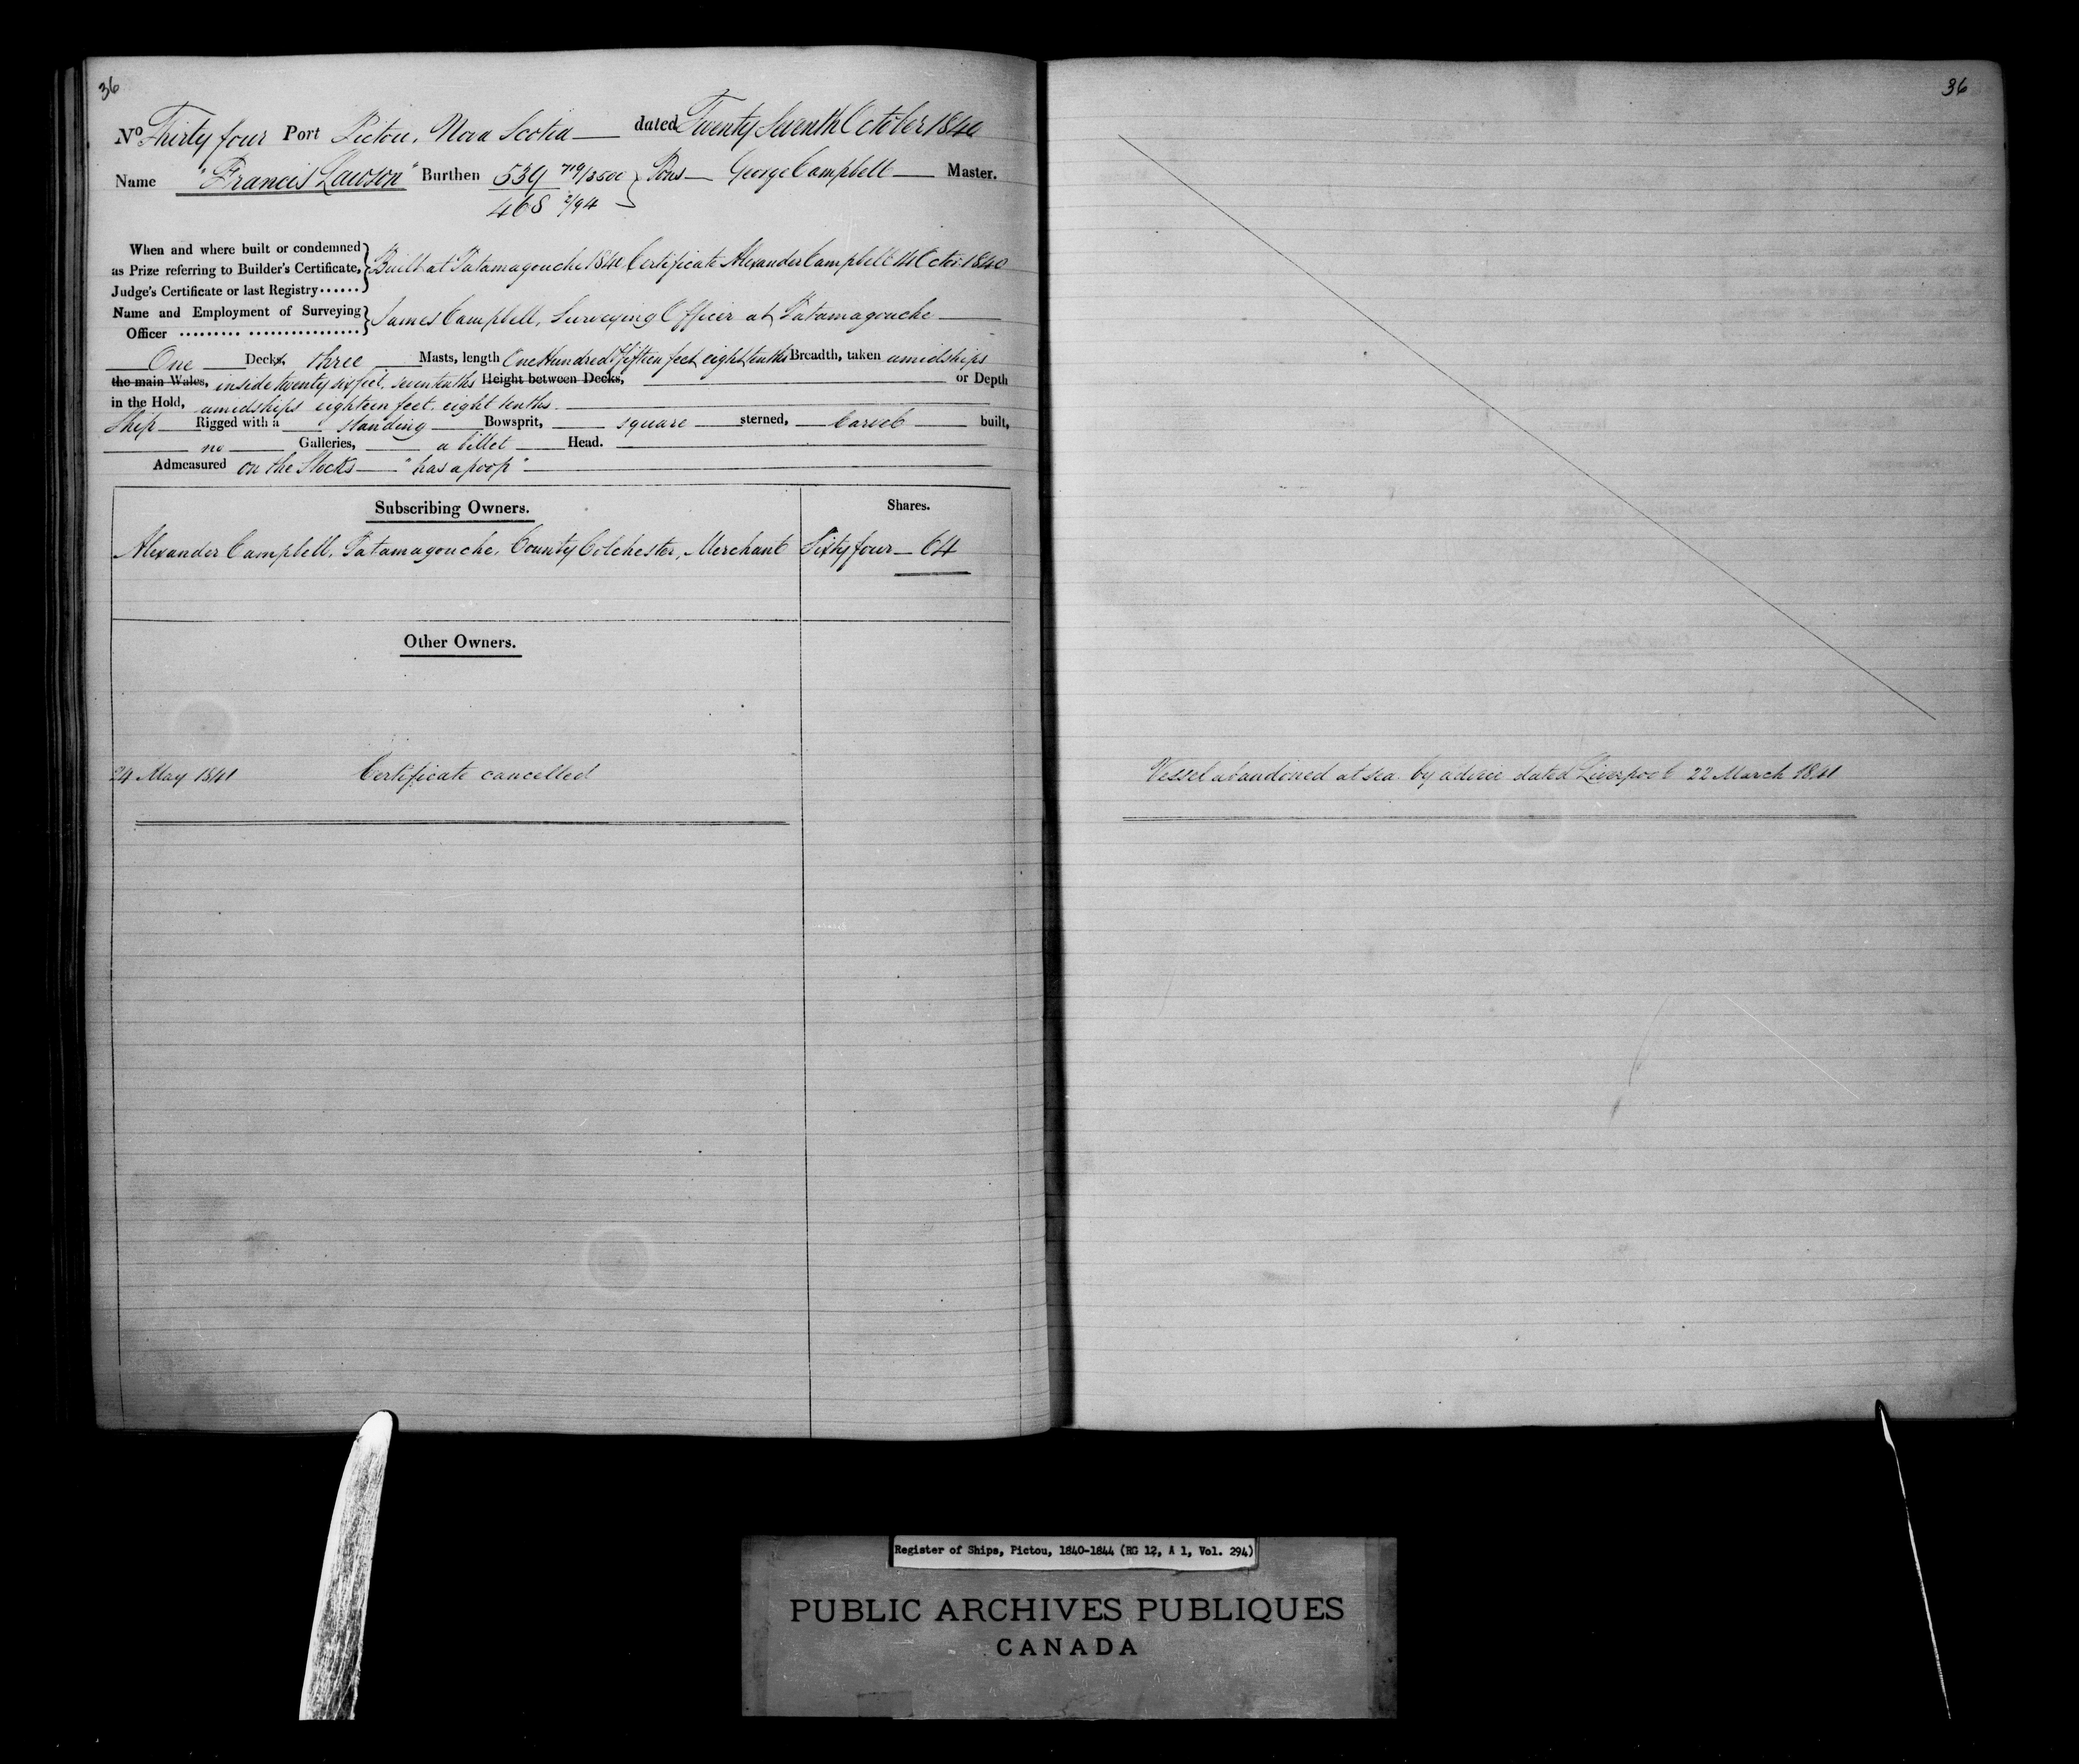 36
No Thirty four Port Pictou, Nova Scotia dated Twenty Seventh October 1840
Name "Francis Lawson" Burthen 539 719/3500 } Tons George Campbell Master.
468 2/94
When and where built or condemned
as Prize referring to Builder's Certificate, } Built at Tatamagouche 1840 Certificate Alexander Campbell 14 Octor: 1840
Judge's Certificate or last Registry ......
Name and Employment of Surveying } James Campbell, Surveying Officer at Tatamagouche
Officer ......... ................
One Decks, three Masts, length One Hundred & fifteen feet eight tenths Breadth, taken amidships
the main Wales, inside twenty six feet, seven tenths Height between Decks, or Depth
in the Hold, amidships eighteen feet, eight tenths
Ship Rigged with a standing Bowsprit, square sterned, Carvel built,
no Galleries, a billet Head.
Admeasured on the Stocks "has a poop"
Subscribing Owners. Shares.
Alexander Campbell, Tatamagouche, County Colchester, Merchant Sixty four 64
Other Owners.
24 May 1841 Certificate cancelled
36
Vessel abandoned at sea by advice dated Liverpool 22 March 1841
Register of Ships, Pictou, 1840-1844 (RG 12, A 1, Vol. 294)
PUBLIC ARCHIVES PUBLIQUES
CANADA